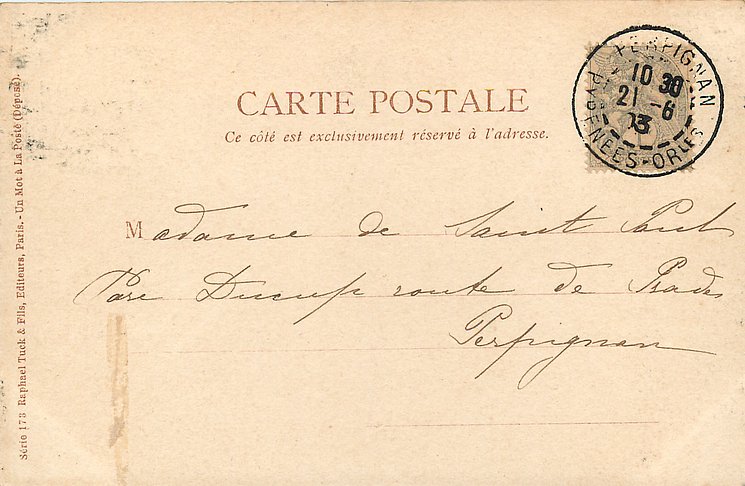 CARTE POSTALE
Ce côté est exclusivement réservé à l'adresse.
PERPIGNAN
10 30
21 -6
03
PYRÉNÉES-ORLES
Madame de Saint Paul
Parc Ducup route de Prades
Perpignan
Série 173 Raphael Tuck & Fils, Editeurs, Paris. - Un Mot à La Poste (Déposé).